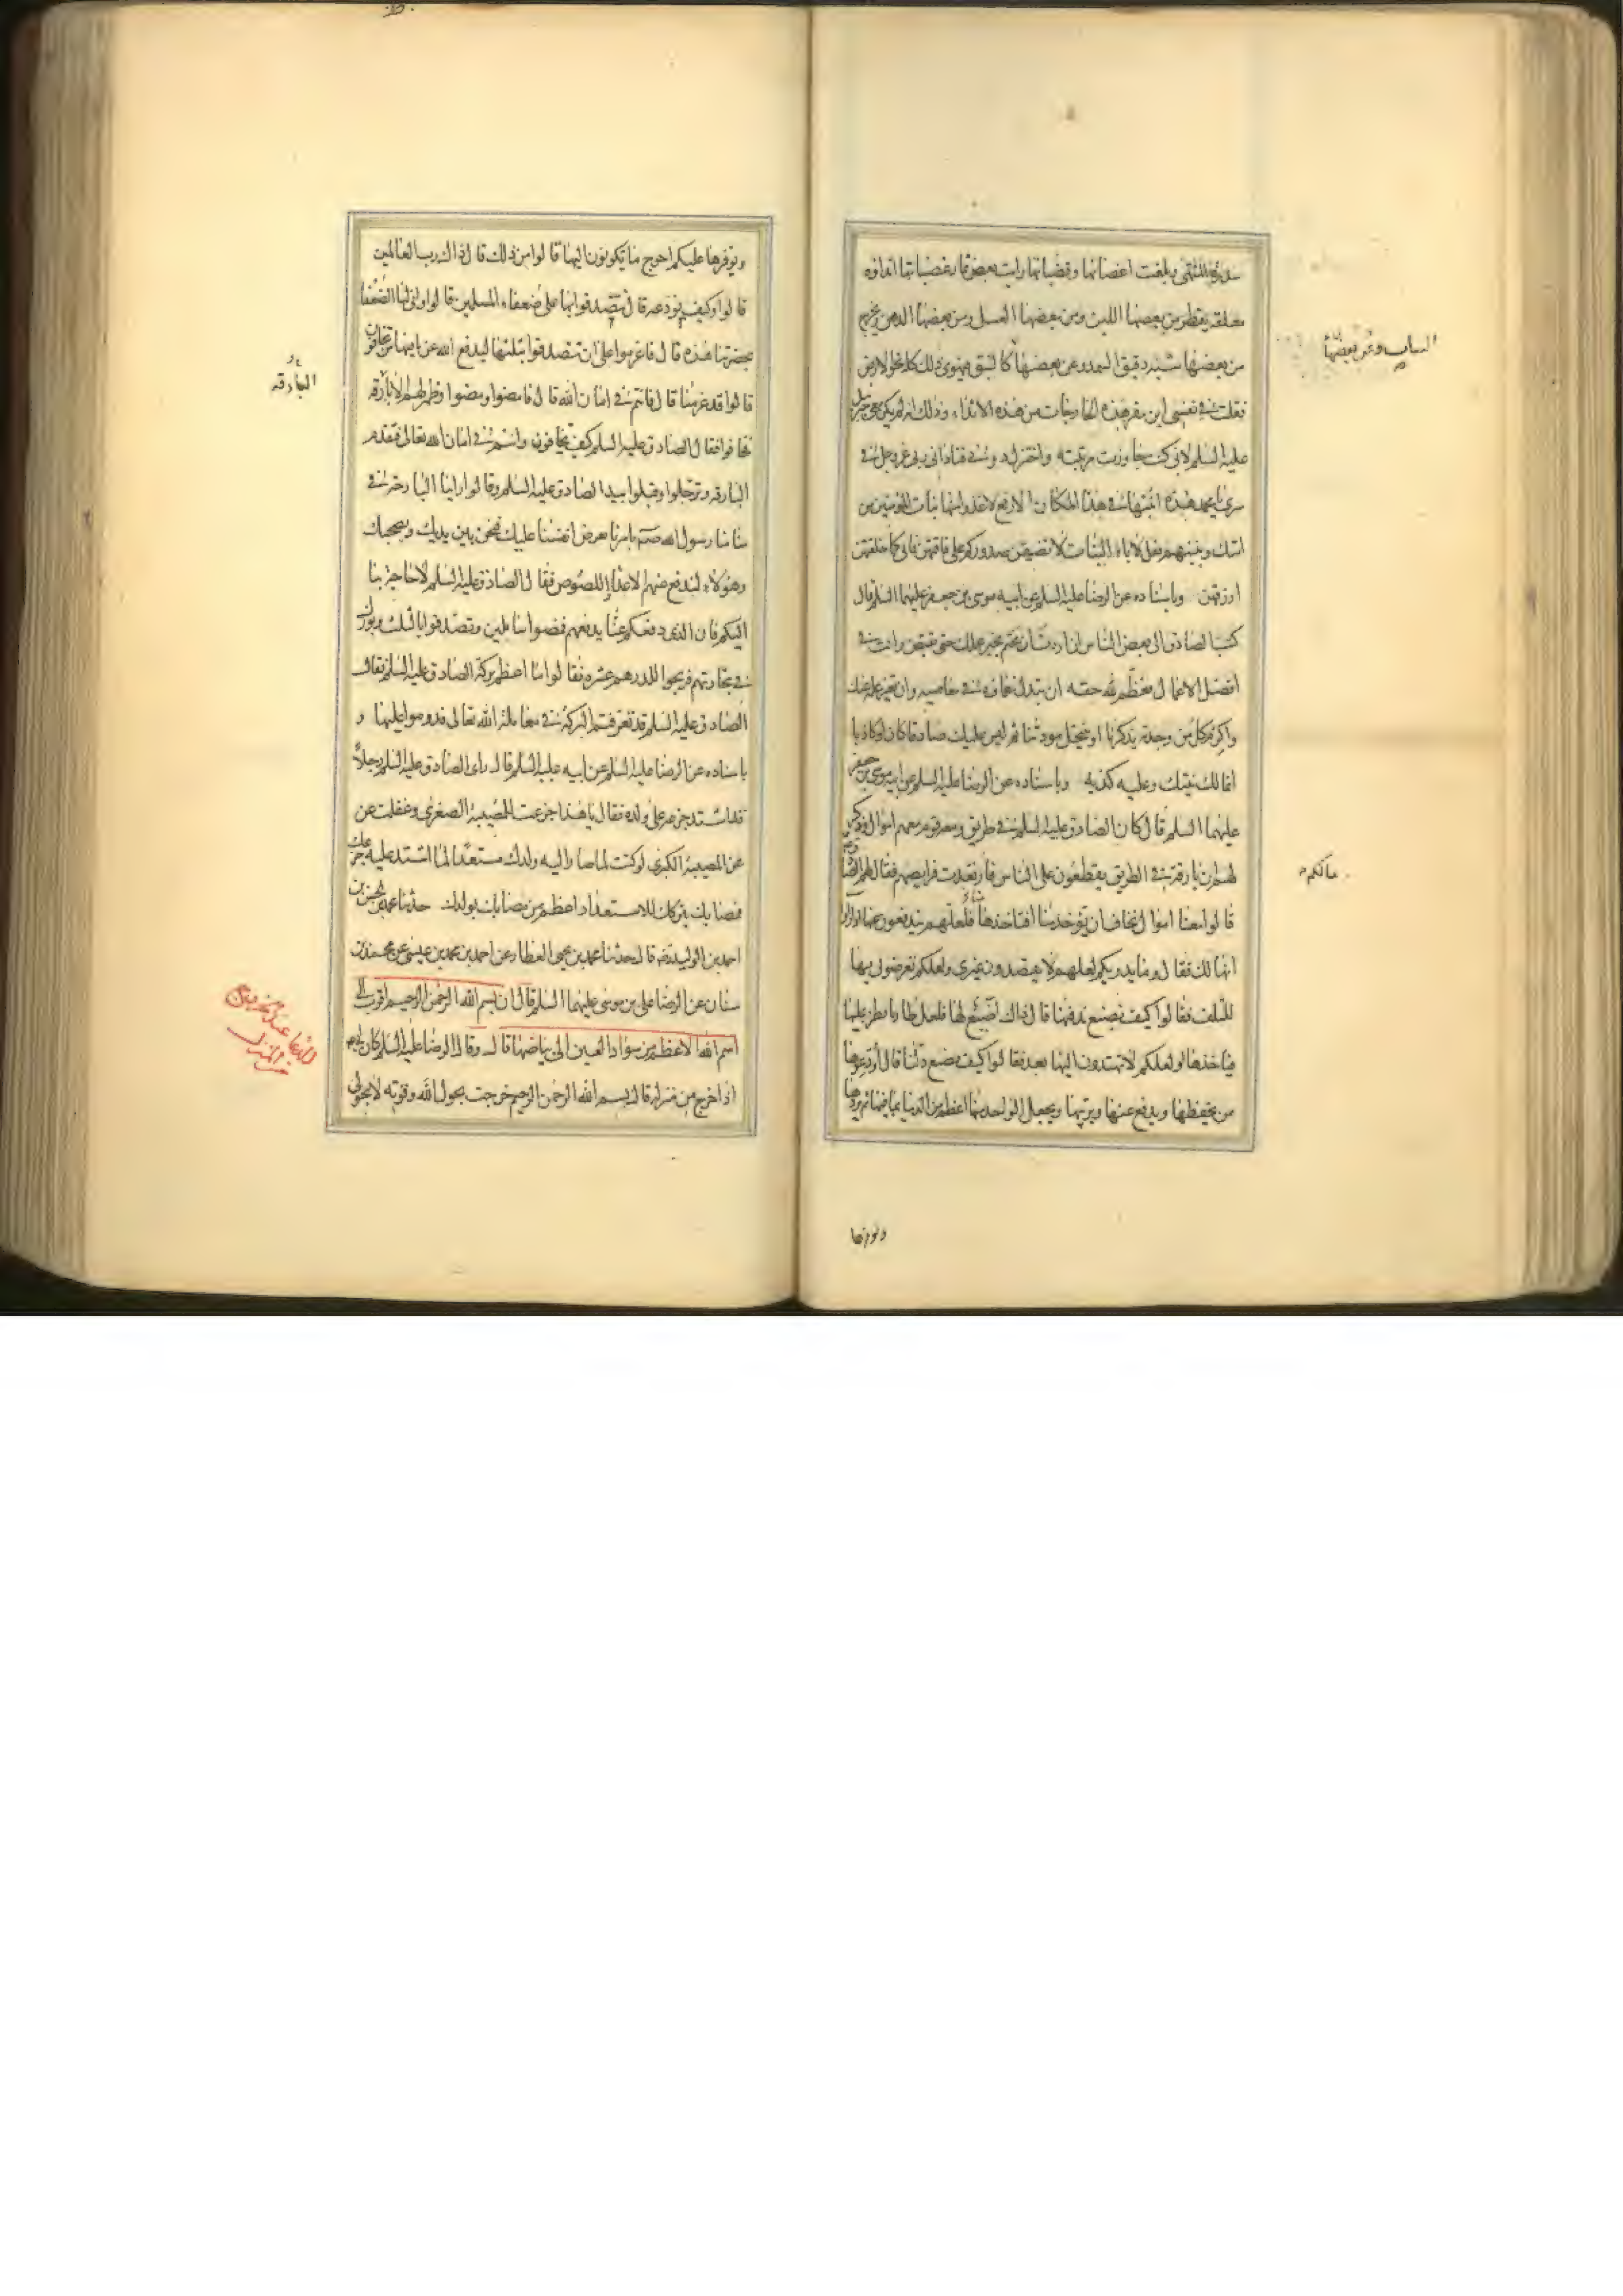 سدرة المنتهى بلغت اغصانها وقضبانها رايت بعض ثمار قضبانها اثداؤه
معلقة يقطر من بعضها اللبن ومن بعضها العسل ومن بعضها الدهن ويخرج
من بعضها شبه دقيق السميد وعن بعضها كالنبق فيهوى ذلك كله نحو الارض
فقلت فى نفسى اين مقر هذه الخارجات من هذه الاثداء وذلك انه لم يكن معى جبرئيل
عليه السلم لانى كنت جاوزت مرتبته واختزل دونى فنادانى ربى عز وجل فى
سرى يا محمد هذه انبتها فى هذا المكان الارفع لاغذو منها بنات المؤمنين من
امتك وبنيهم فقل لاباء البنات لا تضيقن صدوركم على فاقتهن فانى كما خلقتهن
ارزقهن وباسناده عن الرضا عليه السلم عن ابيه موسى بن جعفر عليهما السلم قال
كتب الصادق الى بعض الناس ان اردت ان يختم بخير عملك حتى تقبض وانت فى
افضل الاعمال فعظم لله حقه ان تبذل نعماؤه فى معاصيه وان تغتر بحلمه عنك
واكرم كل من وجدته يذكرنا او ينتحل مودتنا ثم ليس عليك صادقا كان او كاذبا
انما لك نيتك وعليه كذبه وباسناده عن الرضا عليه السلم عن ابيه موسى بن جعفر
عليهما السلم قال كان الصادق عليه السلم فى طريق ومعه قوم معهم اموال وذكر
لهم ان بارقة فى الطريق يقطعون على الناس فارتعدت فرايصهم فقال لهم الصادق
قالوا معنا اموال نخاف ان تؤخذ منا افتاخذها منا فلعلهم يندفعون عنها اذا راوا
انها لك فقال وما يدريكم لعلهم لا يقصدون غيرى ولعلكم تعرضونى بها
للتلف فقالوا كيف نصنع ندفنها قال ذاك اضيع لها فلعل طاريا يطرى عليها
فياخذها ولعلكم لا تهتدون اليها بعد فقالوا كيف نصنع دلنا قال اودعوها
من يحفظها ويدفع عنها ويربيها ويجعل الواحد منها اعظم من الدنيا بما فيها ثم يردها
ومن بعضها الثياب
مالكم
ويوفرها
ويوفرها عليكم احوج ما تكونون اليها قالوا من ذلك قال ذاك رب العالمين
قالوا وكيف نودعه قال تتصدقوا بها على ضعفاء المسلمين قالوا وانى لنا الضعفا
بحضرتنا هذه قال فاعزموا على ان تتصدقوا بثلثها ليدفع الله عن باقيها من تخافون
قالوا قد عزمنا قال فانتم فى امان الله قال فامضوا ومضوا وظهر لهم البارقة
فخافوا فقال الصادق عليه السلم كيف تخافون وانتم فى امان الله تعالى فتقدم
البارقه وترجلوا وقبلوا يد الصادق عليه السلم وقالوا راينا البارحة فى
منامنا رسول الله صلعم يامرنا بعرض انفسنا عليك فنحن بين يديك ونصحبك
وهؤلاء لندفع عنهم الاعداء واللصوص فقال الصادق عليه السلم لا حاجة بنا
اليكم فان الذى دفعكم عنا يدفعهم فمضوا سالمين وتصدقوا بالثلث وبورك
فى تجارتهم فربحوا للدرهم عشره فقالوا ما اعظم بركة الصادق عليه السلم فقال
الصادق عليه السلم قد تعرفتم البركة فى معاملة الله تعالى فدوموا عليها و
باسناده عن الرضا عليه السلم عن ابيه عليه السلم قال راى الصادق عليه السلم رجلا
قد اشتد جزعه على ولده فقال يا هذا جزعت للمصيبة الصغرى وغفلت عن
عن المصيبة الكبرى لو كنت لما صار اليه ولدك مستعدا لما اشتد عليه جزعك
فمصابك بتركك للاستعداد اعظم من مصابك بولدك حدثنا محمد بن الحسن بن
احمد بن الوليد رضه قال حدثنا محمد بن يحيى العطار عن احمد بن محمد بن عيسى عن محمد بن
سنان عن الرضا على بن موسى عليهما السلم قال ان بسم الله الرحمن الرحيم اقرب الى
اسم الله الاعظم من سواد العين الى بياضها قال وقال الرضا عليه السلم كان ابى
اذا خرج من منزله قال بسم الله الرحمن الرحيم خرجت بحول الله وقوته لا بحولى
البارقه
الدعا عند الخروج
من المنزل